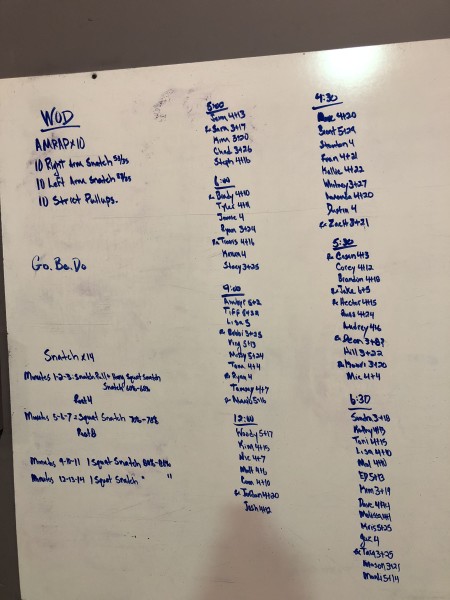 WOD
AMRAP x 10
10 Right Arm Snatch
10 Left Arm Snatch
10 Strict Pullups.
Go. Be. Do
Snatch x 14
Minutes 1-2-3: Snatch Pull + Hang Squat Snatch
Snatch
Rest 4
Minutes 5-6-7 = Squat Snatch 70%-78%
Rest 8
Minutes 9-10-11 1 Squat Snatch
Minutes 12-13-14 1 Squat Snatch " "
5:00
4+13
Rx Sara 3+17
3+20
Chad 3+26
Steph 4+16
Rx Brady 4+10
Tyler 4+11
Jamie 4
Ryan 3+24
Rx Travis 4+16
4
Stacy 3+25
9:00
Amber 5+2
Tiff
Lisa 5
Rx Bobbi 3+25
5+13
Misty 5+24
Tana 4+4
Rx Ryan 4
Tammy 4+7
Rx 5+16
12:00
Woody 5+17
Kim 4+15
Nic 4+7
Matt 4+16
Cam 4+10
Rx 4+20
Josh 4+2
4:30
4+20
Brent 5+29
Stanton 4
Fran 4+21
Hallie 4+22
Whitney 3+27
Amanda 4+20
Dustin 4
Rx Zach 3+21
5:30
Rx 4+3
Corey 4+12
Brandon 4+18
Rx Jake 6+5
Rx Hector 4+15
Russ 4+24
Audrey 4+6
Rx Dean 3+8?
Hill 3+22
Rx 3+20
Mic 4+4
6:30
Sandra 3+18
Kathy 4+13
Toni 4+15
Lisa 4+10
Mat 4+10
ED 5+13
Pam 3+19
Dave 4+14
Melissa 4+1
Kris 5+25
Jac 4
Rx 3+25
Mason 3+21
5+14